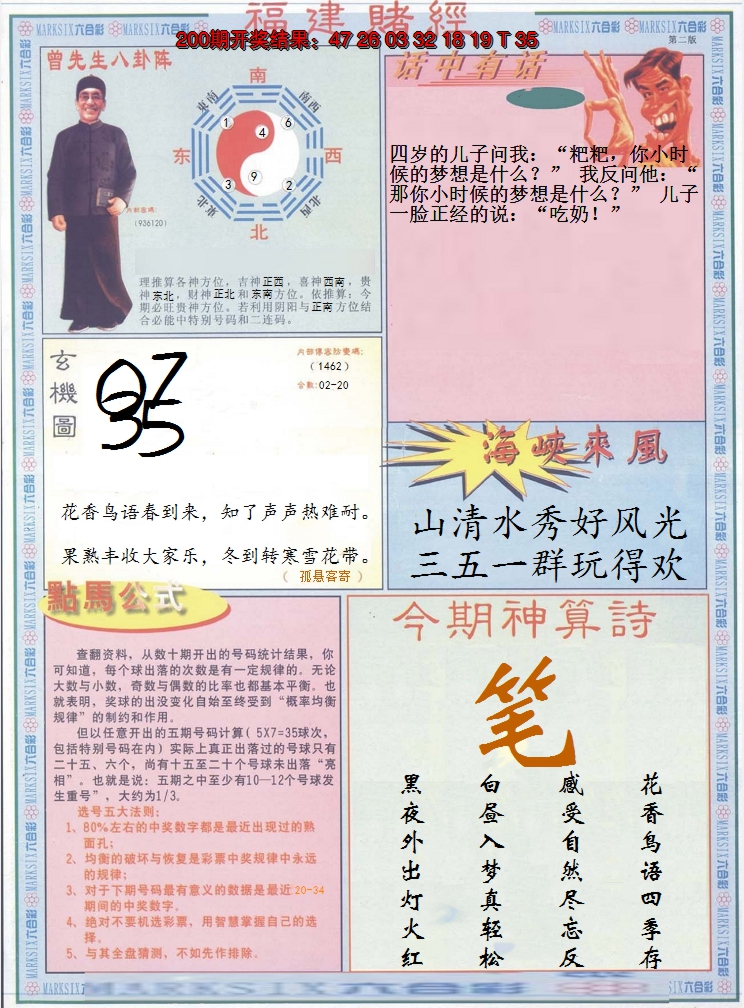 福建賭經
200期开奖结果：47 26 03 32 18 19 T 35
第二版
MARKSIX六合彩
曾先生八卦阵
南
东南
南西
1
4
6
东
西
3
9
2
東北
北西
北
内部密碼：
(936120)
理推算各神方位，吉神正西，喜神西南，贵
神东北，财神正北和东南方位。依推算：今
期必旺贵神方位。若利用阴阳与正南方位结
合必能中特别号码和二连码。
话中有话
四岁的儿子问我：“粑粑，你小时
候的梦想是什么？” 我反问他：“
那你小时候的梦想是什么？” 儿子
一脸正经的说：“吃奶！”
玄機圖
07
35
(1462)
合数:02-20
花香鸟语春到来，知了声声热难耐。
果熟丰收大家乐，冬到转寒雪花带。
（孤悬客寄）
海峽來風
山清水秀好风光
三五一群玩得欢
點馬公式
查翻资料，从数十期开出的号码统计结果，你
可知道，每个球出落的次数是有一定规律的。无论
大数与小数，奇数与偶数的比率也都基本平衡。也
就表明，奖球的出没变化自始至终受到“概率均衡
规律”的制约和作用。
但以任意开出的五期号码计算（5X7=35球次，
包括特别号码在内）实际上真正出落过的号球只有
二十五、六个，尚有十五至二十个号球未出落“亮
相”。也就是说：五期之中至少有10—12个号球发
生重号”，大约为1/3。
选号五大法则：
1、80%左右的中奖数字都是最近出现过的熟
面孔；
2、均衡的破坏与恢复是彩票中奖规律中永远
的规律；
3、对于下期号码最有意义的数据是最近20-34
期间的中奖数字。
4、绝对不要机选彩票，用智慧掌握自己的选
择。
5、与其全盘猜测，不如先作排除。
今期神算詩
笔
花香鸟语四季存
感受自然尽忘反
白昼入梦真轻松
黑夜外出灯火红